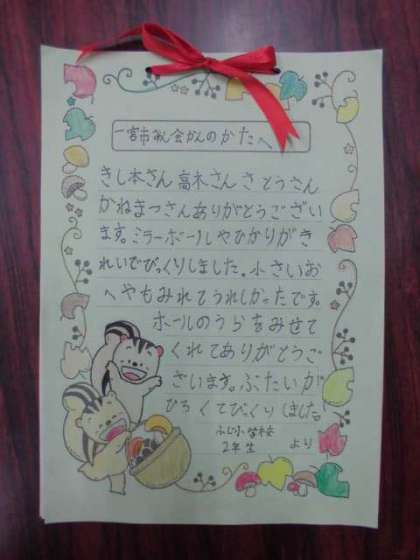 一宮市みん会かんのかたへ
きし本さん高木さんさとうさん
かねまつさんありがとうござい
ます。ミラーボールやひかりがき
れいでびっくりしました。小さいお
へやもみれてうれしかったです。
ホールのうらをみせて
くれてありがとうご
ざいます。ぶたいが
ひろくてびっくりしました。
ふじ小学校
2年生 より